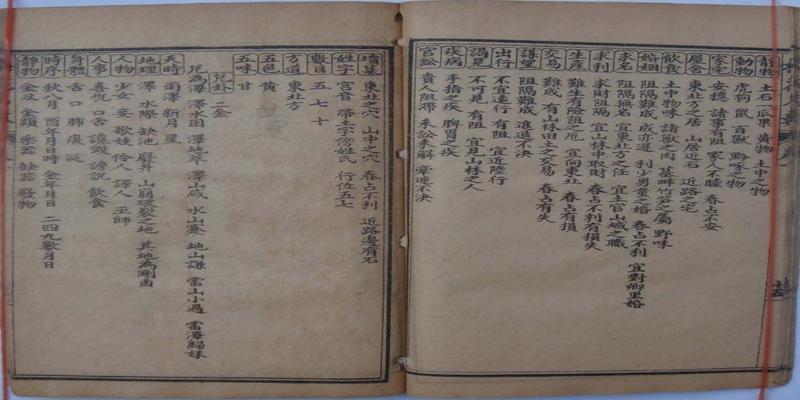 靜物 土石 瓜果 黃物 土中之物
動物 虎 狗 鼠 百獸 黔喙之物
家宅 安穩 諸事有阻 家人不睦 春占不安
屋舍 東北方之居 山居近石 近路之宅
飲食 土中物味 諸獸之肉 墓畔竹笋之屬 野味
婚姻 阻隔難成 成亦遲 利少男童之婚 春占不利 宜對鄉里婚
求名 阻隔無名 宜東北方之任 宜土官山城之職
求利 求財阻隔 宜山林中取財 春占不利有損失
生產 難生 有險阻之厄 宜向東北 春占有損
交易 難成 有山林田土之交易 春占有失
謀望 阻隔難成 進退不決
出行 不宜遠行 有阻 宜近陸行
謁見 不可見 有阻 宜見山林之人
疾病 手指之疾 脾胃之疾
官訟 貴人阻滯 未訟未解 牽連不決
墳墓 東北之穴 山中之穴 春占不利 近路邊有石
姓字 宮音 帶土字傍姓氏 行位五七
數目 五 七 十
方道 東北方
五色 黃
五味 甘
兌卦 二 金
兌為澤 澤水困 澤地萃 澤山咸 水山蹇 地山謙 雷山小過 雷澤歸妹
天時 雨澤 新月 星
地理 澤 水際 缺池 廢井 山崩破裂之地 其地為剛鹵
人物 少女 妾 歌妓 伶人 譯人 巫師
人事 喜悅 口舌 讒毀 謗說 飲食
身體 舌 口 肺 痰 涎
時序 秋八月 酉年月日時 金年月日 二四九數月日
靜物 金刃 金類 樂器 缺器 廢物